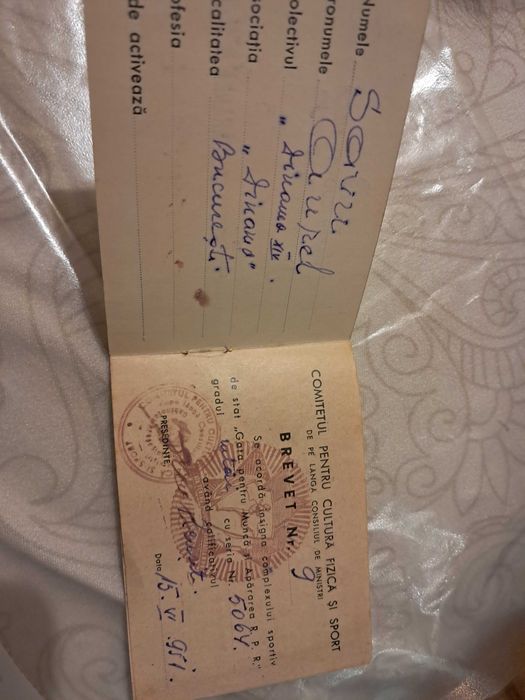 Numele Savu
ronumele Aurel
olectivul „Dinamo XIV.
sociația „Dinamo"
calitatea București.
ofesia
de activează
COMITETUL PENTRU CULTURĂ FIZICĂ ȘI SPORT
DE PE LÂNGĂ CONSILIUL DE MINIȘTRI
BREVET Nr. 9
Se acordă insigna complexului sportiv
de stat „Gata pentru Muncă și Apărarea R. P. R."
gradul cu seria Nr. 5064.
având calificativul
PREȘEDINTE,
Data 15. VI 951.